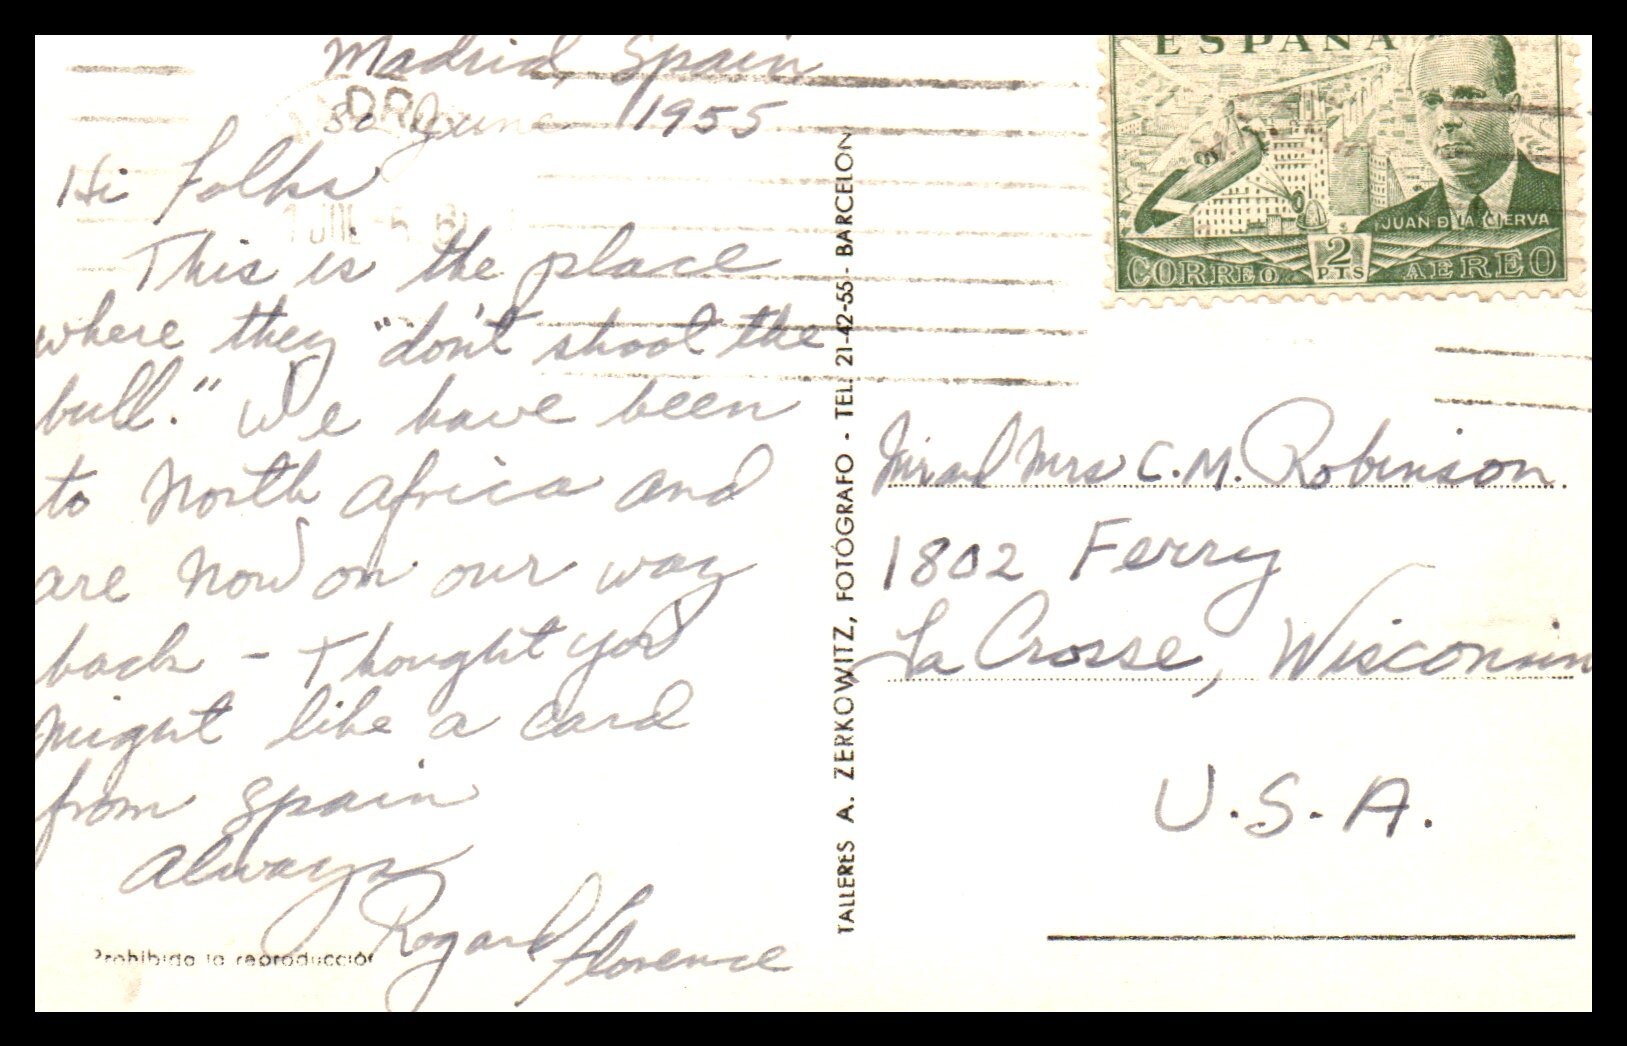 Madrid, Spain
30 June 1955
Hi Folks
This is the place
where they "don't shoot the
bull." We have been
to North Africa and
are now on our way
back - thought you
might like a card
from Spain
Always
Florence
Prohibida la reproducción
TALLERES A. ZERKOWITZ, FOTÓGRAFO - TEL. 21-42-55 - BARCELON
ESPAÑA
JUAN DE LA CIERVA
2
PTS
CORREO AEREO
Mr and Mrs C. M. Robinson
1802 Ferry
La Crosse, Wisconsin
U.S.A.